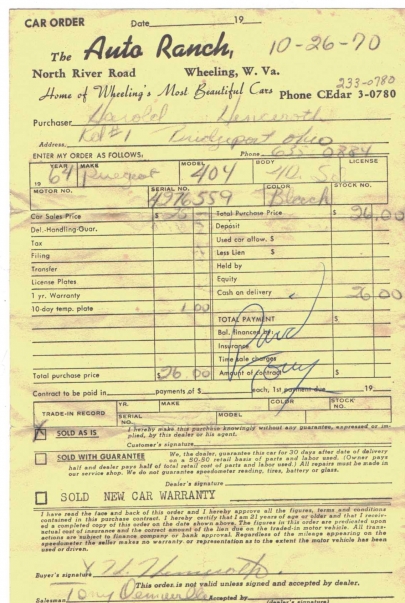 CAR ORDER Date 19
The Auto Ranch, 10-26-70
North River Road Wheeling, W. Va.
233-0780
Home of Wheeling's Most Beautiful Cars Phone CEdar 3-0780
Purchaser Harold
Address Rd #1 Bridgeport Ohio
ENTER MY ORDER AS FOLLOWS: Phone 635 0884
YEAR MAKE MODEL BODY LICENSE
19 64 Peugeot 404 4D. Sd
MOTOR NO. SERIAL NO. COLOR STOCK NO.
4976559 Black
Car Sales Price $ 25 Total Purchase Price $ 26.00
Del.-Handling-Guar. Deposit
Tax Used car allow. $
Filing Less Lien $
Transfer Held by
License Plates Equity
1 yr. Warranty Cash on delivery 26 00
10-day temp. plate 1 00
TOTAL PAYMENT $
Bal. financed by
Insurance
Time sale charges
Total purchase price $ 26.00 Amount of contract $
Contract to be paid in payments of $ each, 1st payment due 19
TRADE-IN RECORD YR. MAKE COLOR STOCK NO.
SERIAL NO. MODEL
X SOLD AS IS I hereby make this purchase knowingly without any guarantee, expressed or implied, by this dealer or his agent.
Customer's signature
SOLD WITH GUARANTEE We, the dealer, guarantee this car for 30 days after date of delivery
on a 50-50 retail basis of parts and labor used. (Owner pays
half and dealer pays half of total retail cost of parts and labor used.) All repairs must be made in
our service shop. We do not guarantee speedometer reading, tires, battery or glass.
Dealer's signature
SOLD NEW CAR WARRANTY
I have read the face and back of this order and I hereby approve all the figures, terms and conditions
contained in this purchase contract. I hereby certify that I am 21 years of age or older and that I receiv-
ed a completed copy of this order on the date shown above. The figures in this order are predicated upon
actual cost of insurance and the correct amount of the lien due on the traded-in motor vehicle. All trans-
actions are subject to finance company or bank approval. Regardless of the mileage appearing on the
speedometer the seller makes no warranty or representation as to the extent the motor vehicle has been
used or driven.
Buyer's signature X
This order is not valid unless signed and accepted by dealer.
Salesman Tony Accepted by
(dealer's signature)